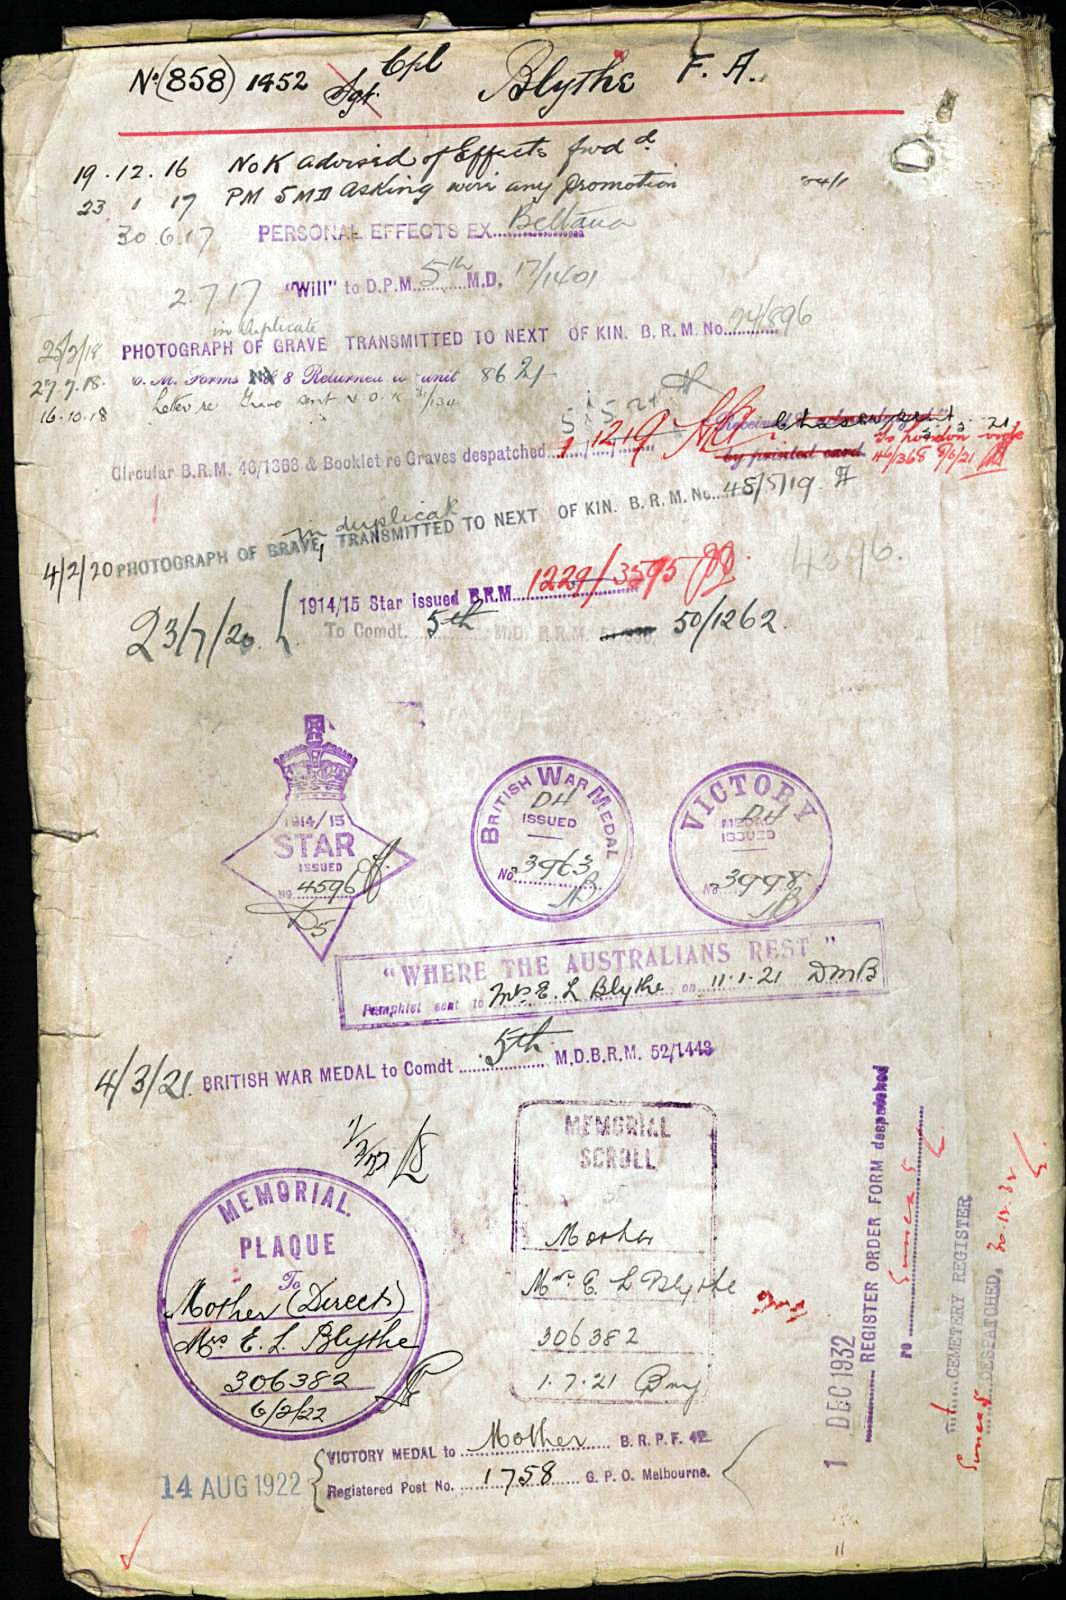 No (858) 1452 Sgt Cpl Blythe F. A.
19.12.16 NoK advised of Effects fwd d
23 1 17 PM 5 MD asking were any promotion
30.6.17 PERSONAL EFFECTS EX Beltana
2.7.17 "Will" to D.P.M. 5th M.D. 17/1401
in duplicate
25/3/18 PHOTOGRAPH OF GRAVE TRANSMITTED TO NEXT OF KIN. B.R.M. No. 24/896
27.7.18. Forms 8 Returned to unit
16.10.18 Letter re Grave sent
Circular B.R.M. 46/1368 & Booklet re Graves despatched
by printed card
in duplicate
4/2/20 PHOTOGRAPH OF GRAVE, TRANSMITTED TO NEXT OF KIN. B.R.M. No. 45/5119
4596.
1914/15 Star issued B.R.M. 1229/3595
23/7/20 To Comdt. 5th M.D. B.R.M. 50/1262
1914/15
STAR
ISSUED
No. 4596
BRITISH WAR MEDAL
DH
ISSUED
No. 3963
VICTORY
MEDAL
DH
ISSUED
No. 3998
"WHERE THE AUSTRALIANS REST"
Pamphlet sent to Mrs E. L Blythe on 11.1.21 DMB
4/3/21. BRITISH WAR MEDAL to Comdt 5th M.D.B.R.M. 52/1443
MEMORIAL
PLAQUE
To
Mother (Direct)
Mrs E. L. Blythe
306382
6/2/22
MEMORIAL
SCROLL
Mother
Mrs E L Blythe
306382
1.7.21
14 AUG 1922
VICTORY MEDAL to Mother B.R.P.F. 42
Registered Post No. 1758 G.P.O. Melbourne.
1 DEC 1932
REGISTER ORDER FORM despatched
CEMETERY REGISTER
DESPATCHED,